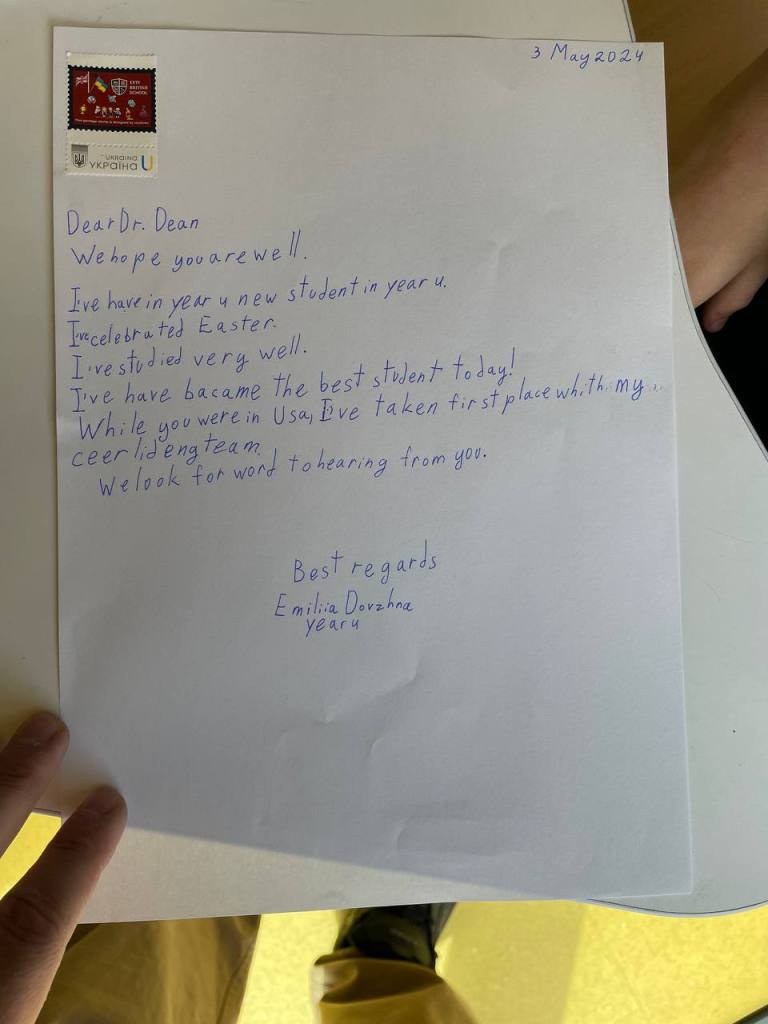 3 May 2024
LVIV
BRITISH
SCHOOL
UKRAINA
УКРАЇНА
Dear Dr. Dean
We hope you are well.
I've have in year 4 new student in year 4.
I've celebrated Easter.
I've studied very well.
I've have bacame the best student today!
While you were in Usa, I've taken first place whith my
ceerlideng team.
We look for word to hearing from you.
Best regards
Emiliia Dovzhna
year 4